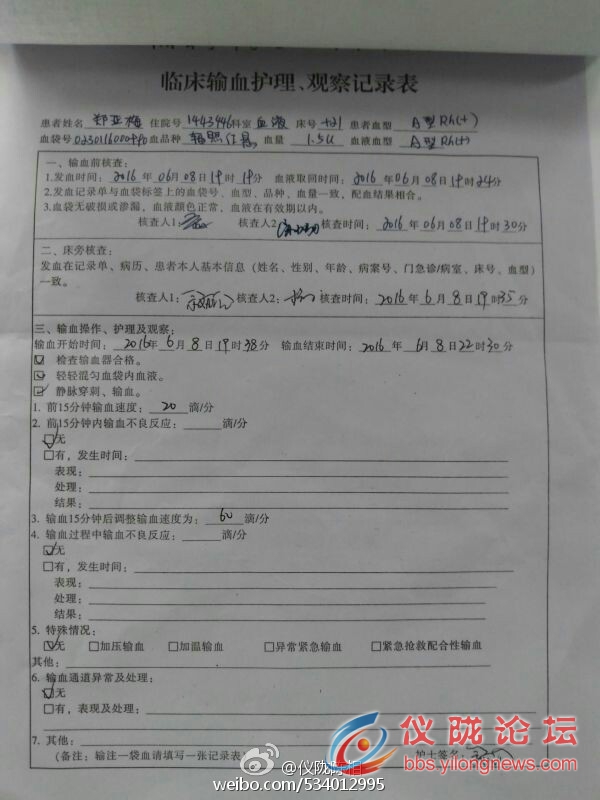 临床输血护理、观察记录表
患者姓名 郑亚梅 住院号 1443446 科室 血液 床号 +21 患者血型 A型Rh(+)
血袋号 血品种 辐照 血量 1.5u 血液血型 A型Rh(+)
一、输血前核查：
1.发血时间：2016年06月08日19时19分 血液取回时间：2016年06月08日19时24分
2.发血记录单与血袋标签上的血袋号、血型、品种、血量一致，配血结果相合。
3.血袋无破损或渗漏，血液颜色正常，血液在有效期以内。
核查人1： 核查人2： 核查时间：2016年06月08日19时30分
二、床旁核查：
发血在记录单、病历、患者本人基本信息（姓名、性别、年龄、病案号、门急诊/病室、床号、血型）
一致。
核查人1： 核查人2： 核查时间：2016年6月8日19时35分
三、输血操作、护理及观察：
输血开始时间：2016年6月8日19时38分 输血结束时间：2016年6月8日22时30分
☑ 检查输血器合格。
☑ 轻轻混匀血袋内血液。
☑ 静脉穿刺、输血。
1. 前15分钟输血速度：20滴/分
2. 前15分钟内输血不良反应：滴/分
☑无
□有，发生时间：
表现：
处理：
结果：
3. 输血15分钟后调整输血速度为：60滴/分
4. 输血过程中输血不良反应：滴/分
☑无
□有，发生时间：
表现：
处理：
结果：
5. 特殊情况：
☑无 □加压输血 □加温输血 □异常紧急输血 □紧急抢救配合性输血
其他：
6. 输血通道异常及处理：
☑无
□有，表现及处理：
7. 其他：
（备注：输注一袋血请填写一张记录表） 护士签名
仪陇论坛
bbs.yilongnews.com
@仪陇
weibo.com/534012995